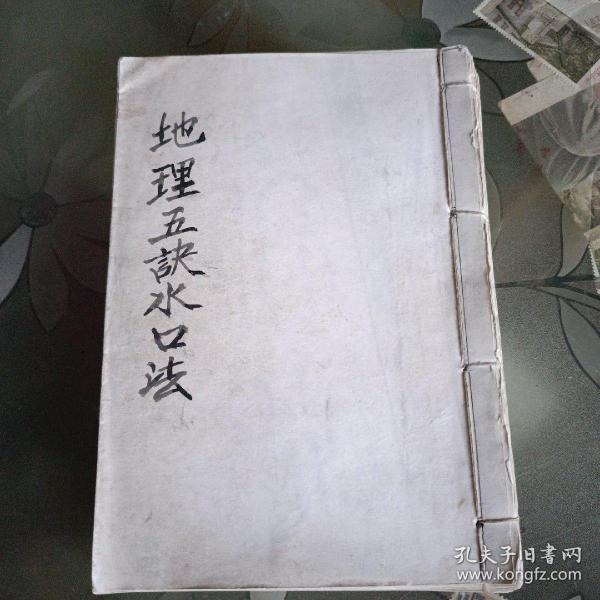 地理五訣水口法
孔夫子旧书网
www.kongfz.com